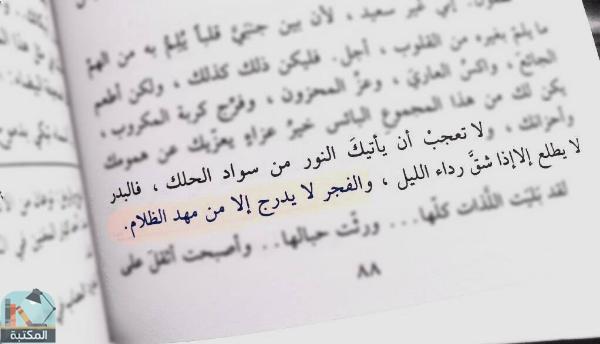 سعيد ، لأن بين جنبيَّ قلباً يُلِمُّ به من الهمِّ
ما يلمّ بغيره من القلوب ، أجل. فليكن ذلك كذلك ، ولكن أطعم
الجائع ، واكسُ العاري ، وعزِّ المحزون ، وفرِّج كربة المكروب ،
يكن لك من هذا المجموع البائس خيرُ عزاءٍ يعزّيك عن همومك
وأحزانك ، ولا تعجبْ أن يأتيكَ النور من سواد الحلك ، فالبدر
لا يطلع إلاإذا شقَّ رداء الليل ، والفجر لا يدرج إلا من مهد الظلام.
لقد بَلِيَت اللَّذات كلّها... ورثّت حبالها.. وأصبحت أثقلَ على
٨٨
المكتبة